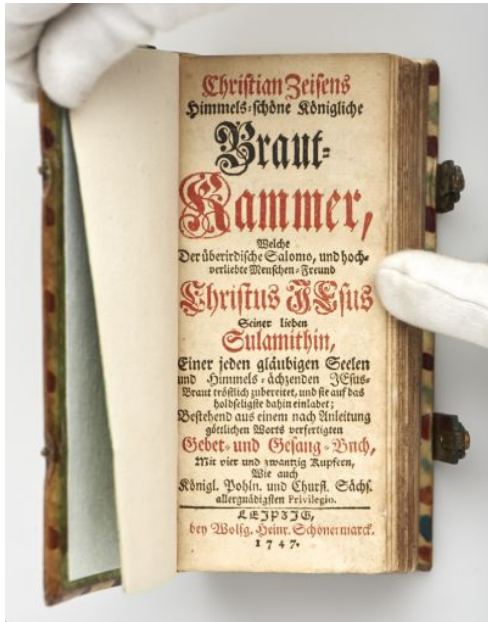 Christian Zeisens
Himmels-schöne Königliche
Braut-
Kammer,
Welche
Der überirdische Salomo, und hoch-
verliebte Menschen-Freund
Christus JEsus
Seiner lieben
Sulamithin,
Einer jeden gläubigen Seelen
und Himmels-ächzenden JEsus-
Braut tröstlich zubereitet, und sie auf das
holdseligste dahin einladet;
Bestehend aus einem nach Anleitung
göttlichen Worts verfertigten
Gebet- und Gesang-Buch,
Mit vier und zwantzig Kupfern,
Wie auch
Königl. Pohln. und Churfl. Sächs.
allergnädigsten Privilegio.
LEIPZIG,
bey Wolfg. Heinr. Schönermarck.
1747.